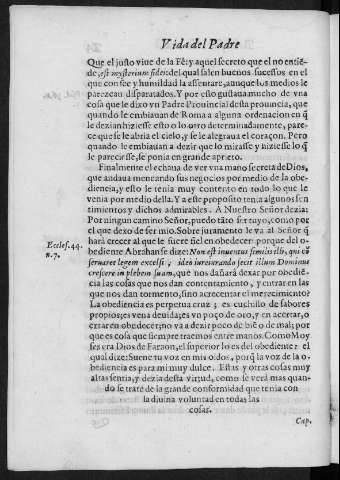 Vida del Padre
Que el justo viue de la Fè: y aquel secreto que el no entiẽ-
de, est mysterium fidei: del qual salen buenos sucessos en el
que con fee y humildad la assentare, aunque los medios le
parezcan disparatados. Y por esto gustaua mucho de vna
cosa que le dixo vn Padre Prouincial desta prouincia, que
quando le embiauan de Roma a alguna ordenacion en q̃
le dezian hiziesse esto o lo otro determinadamente, pare-
ce que se le abria el cielo, y se le alegraua el coraçon. Pero
quando le embiauan a dezir que lo mirasse y hiziesse lo q̃
le pareciesse, se ponia en grande aprieto.
Finalmente el echaua de ver vna mano secreta de Dios,
que andaua meneando sus negocios por medio de la obe-
diencia, y esto le tenia muy contento en todo lo que le
venia por medio della. Y a este proposito tenia algunos sen
timientos y dichos admirables. A Nuestro Señor dezia:
Por ningun camino Señor, puedo tãto ser tuyo, como por
el que dexo de ser mio. Sobre juramento le va al Señor q̃
harà crecer al que le suere fiel en obedecer: porque del o-
bediente Abrahan se dize: Non est inuentus similis illi, qui cõ
seruaret legem excelsi; ideo iureiurando fecit illum Dominus
crescere in plebem suam, que nos dañarà dexar por obediẽ-
cia las cosas que nos dan contentamiento, y entrar en las
que nos dan tormento, sino acrecentar el merecimiento?
La obediencia es perpetua cruz, y es cuchillo de sabores
propios; es vena de uidas; es vn poço de oro, y en acertar, o
errar en obedecer; no va a dezir poco de biẽ o de mal; por
que es cosa que siempre traemos entre manos. Como Moy
ses era Dios de Faraon, el superior lo es del obediente: el
qual dize: Suene tu voz en mis oidos, porq̃ la voz de la o-
bediencia es para mi muy dulce. Estas y otras cosas muy
altas sentia, y dezia desta virtud, como se verà mas quan-
do se tratè de la grande conformidad que tenia con
la diuina voluntad en todas las
cosas.
Eccles. 44.
n. 7.
Cap.